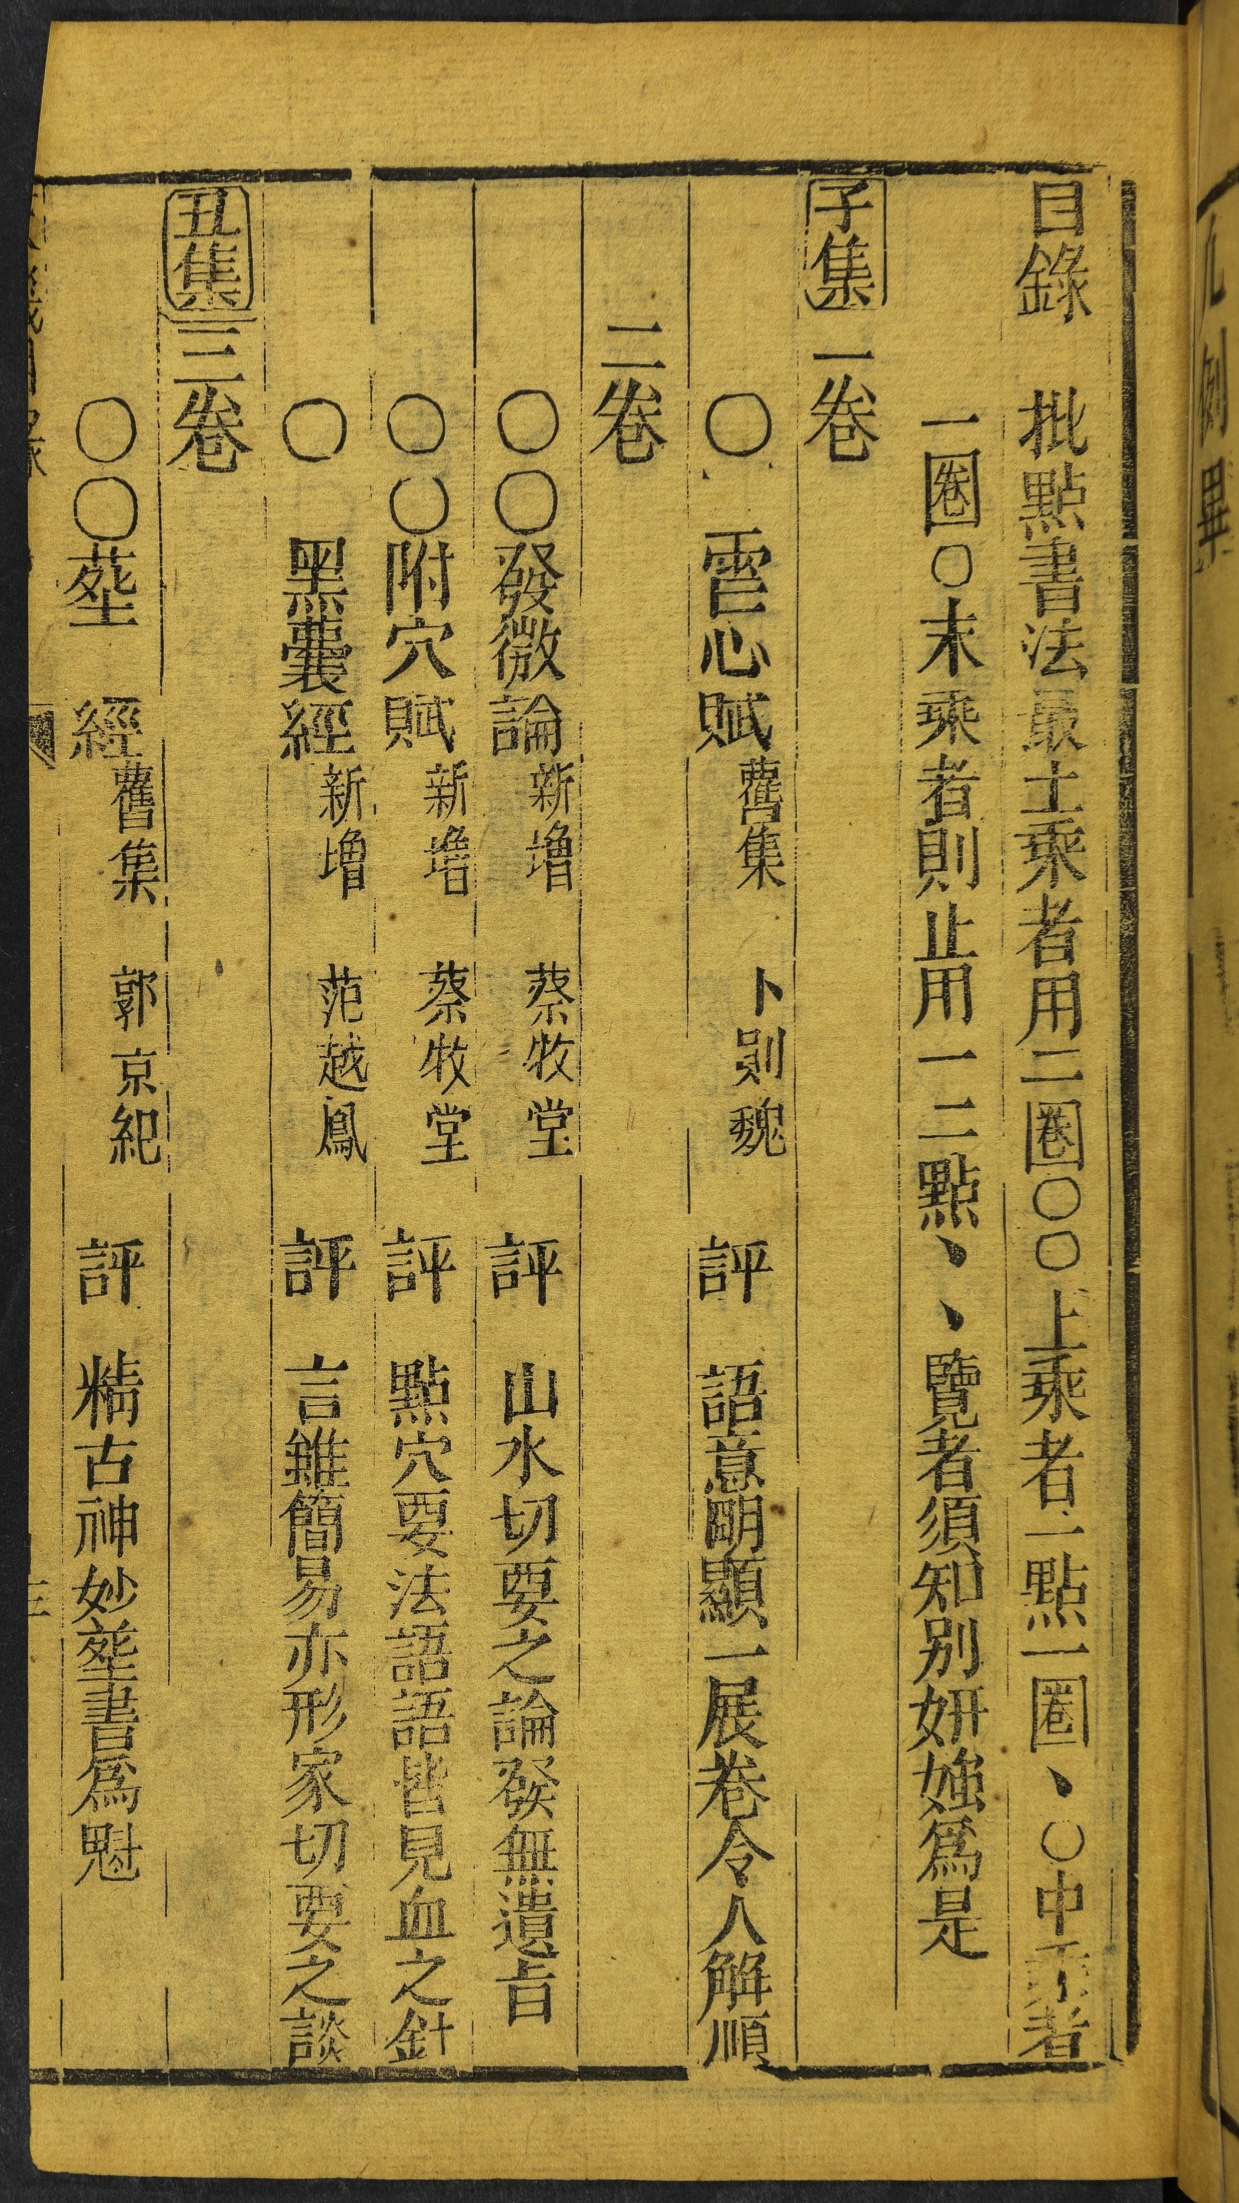 目錄 批點書法最上乘者用二圈〇〇上乘者一點一圈、〇中乘者
一圈〇末乘者則止用一二點、、覽者須知別妍媸爲是
子集 一卷
〇 雪心賦 舊集 卜則巍 評 語意明顯一展卷令人解順
二卷
〇〇發微論 新增 蔡牧堂 評 山水切要之論發無遺旨
〇〇附穴賦 新增 蔡牧堂 評 點穴要法語語皆見血之針
〇 黑囊經 新增 范越鳳 評 言雖簡易亦形家切要之談
丑集 三卷
〇〇塟 經 舊集 郭京紀 評 精古神妙塟書爲魁
凡例畢